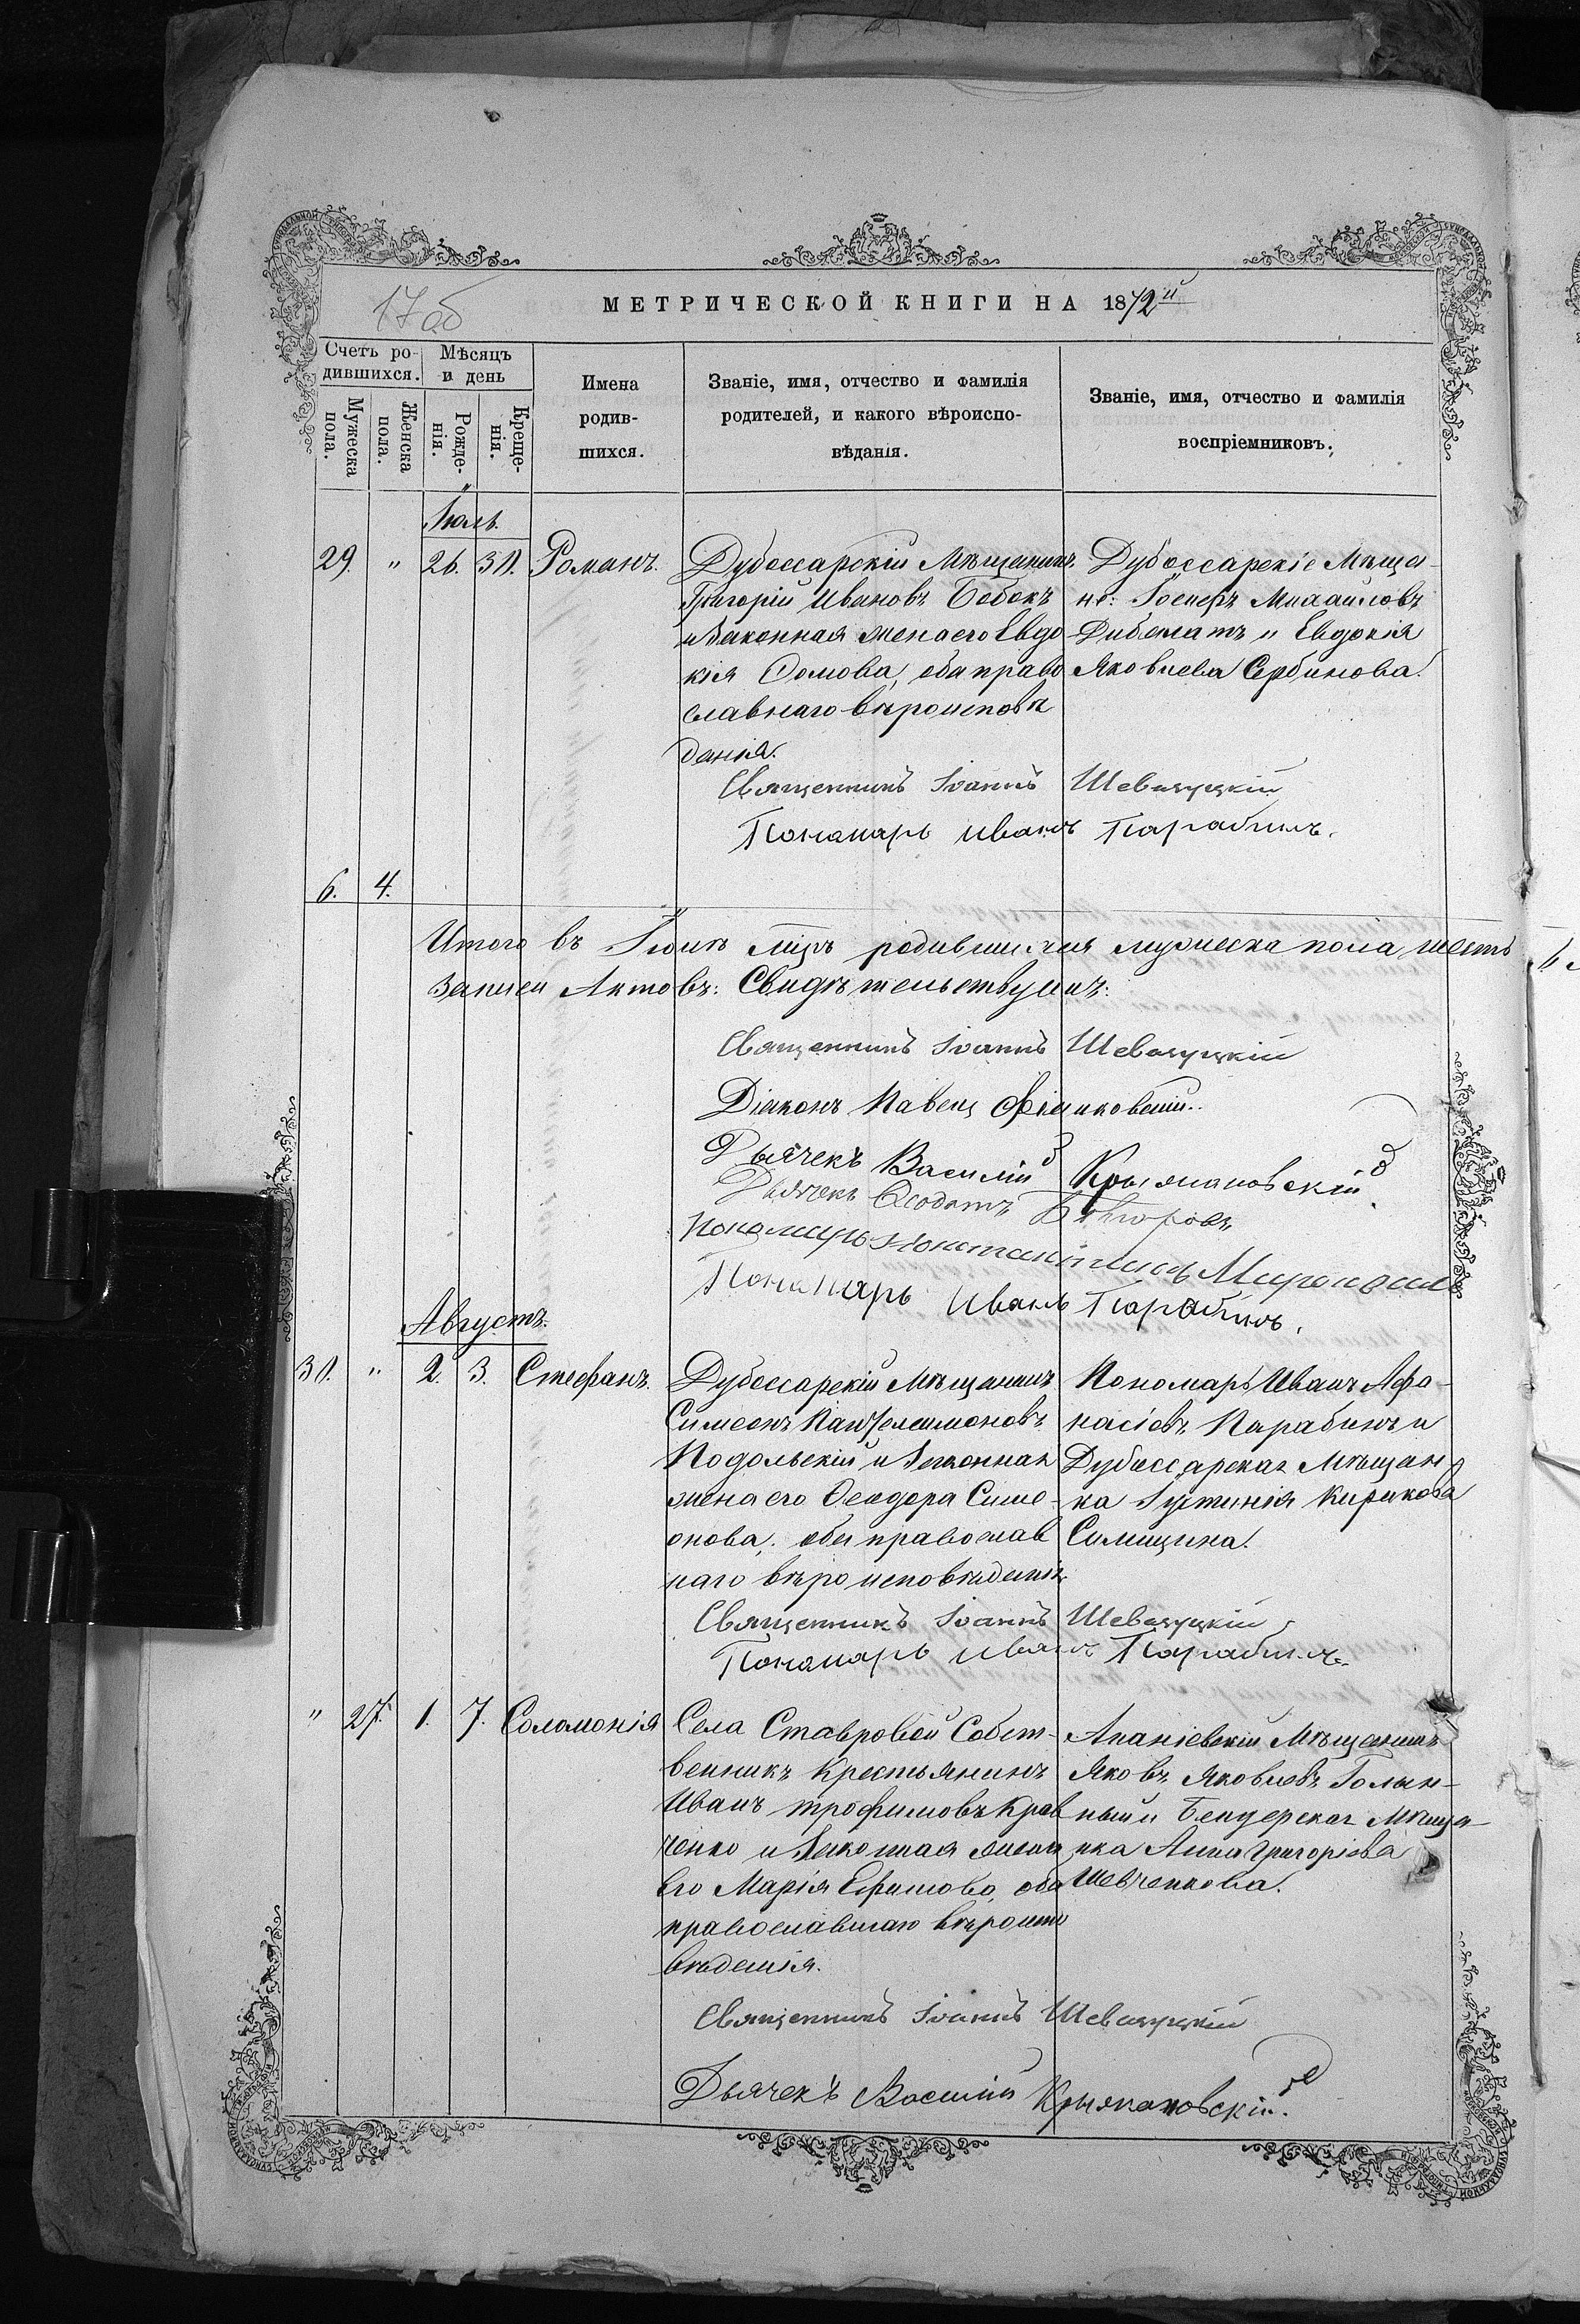 17 об
МЕТРИЧЕСКОЙ КНИГИ НА 1872й
Счетъ ро-
дившихся.
Мужеска
пола.
Женска
пола.
Мѣсяцъ
и день
Рожде-
нія.
Креще-
нія.
Имена
родив-
шихся.
Званіе, имя, отчество и фамилія
родителей, и какого вѣроиспо-
вѣданія.
Званіе, имя, отчество и фамилія
воспріемниковъ.
Іюль.
29. " 26. 30. Романъ.
Дубоссарскій Мѣщанинъ
Григорій Ивановъ Бобокъ
и Законная жена его Евдо
кія Ѳомова, оба право
славнаго вѣроисповѣ
данія.
Дубоссарскіе Мѣща-
не: Михаиловъ
и Евдокія
Яковлева Сербинова.
Священникъ Іоаннъ Шевалуцкій
Пономарь Иванъ Парабинъ.
6. 4.
Итого въ Іюлѣ мцѣ родившихся мужеска пола шесть
записей Актовъ: Свидѣтельствуютъ:
Священникъ Іоаннъ Шевалуцкій
Діаконъ Павелъ
Дьячекъ Василій Крыжановскій.
Дьячекъ Ѳеодотъ
Пономарь Константинъ
Пономарь Иванъ Парабинъ.
Августъ.
30. " 2. 3. Стефанъ.
Дубоссарскій Мѣщанинъ
Симеонъ Пантелеимоновъ
Подольскій и Законная
жена его Ѳеодора Симе-
онова, оба православ
наго вѣроисповѣданія.
Пономарь Иванъ Афа-
насіевъ Парабинъ и
Дубоссарская Мѣщан-
ка Іустинія Кирикова
Силицина.
Священникъ Іоаннъ Шевалуцкій
Пономарь Иванъ Парабинъ.
" 27. 1. 7. Соломонія
Села Ставровой Собст-
венникъ Крестьянинъ
Иванъ Трофимовъ Крав
ченко и Законная жена
Его Марія Ефимова, оба
православнаго вѣроиспо
вѣданія.
Ананіевскій Мѣщанинъ
Яковъ Яковлевъ
и Бендерская Мѣща-
нка Анна Григоріева
Шевченкова.
Священникъ Іоаннъ Шевалуцкій
Дьячекъ Василій Крыжановскій.